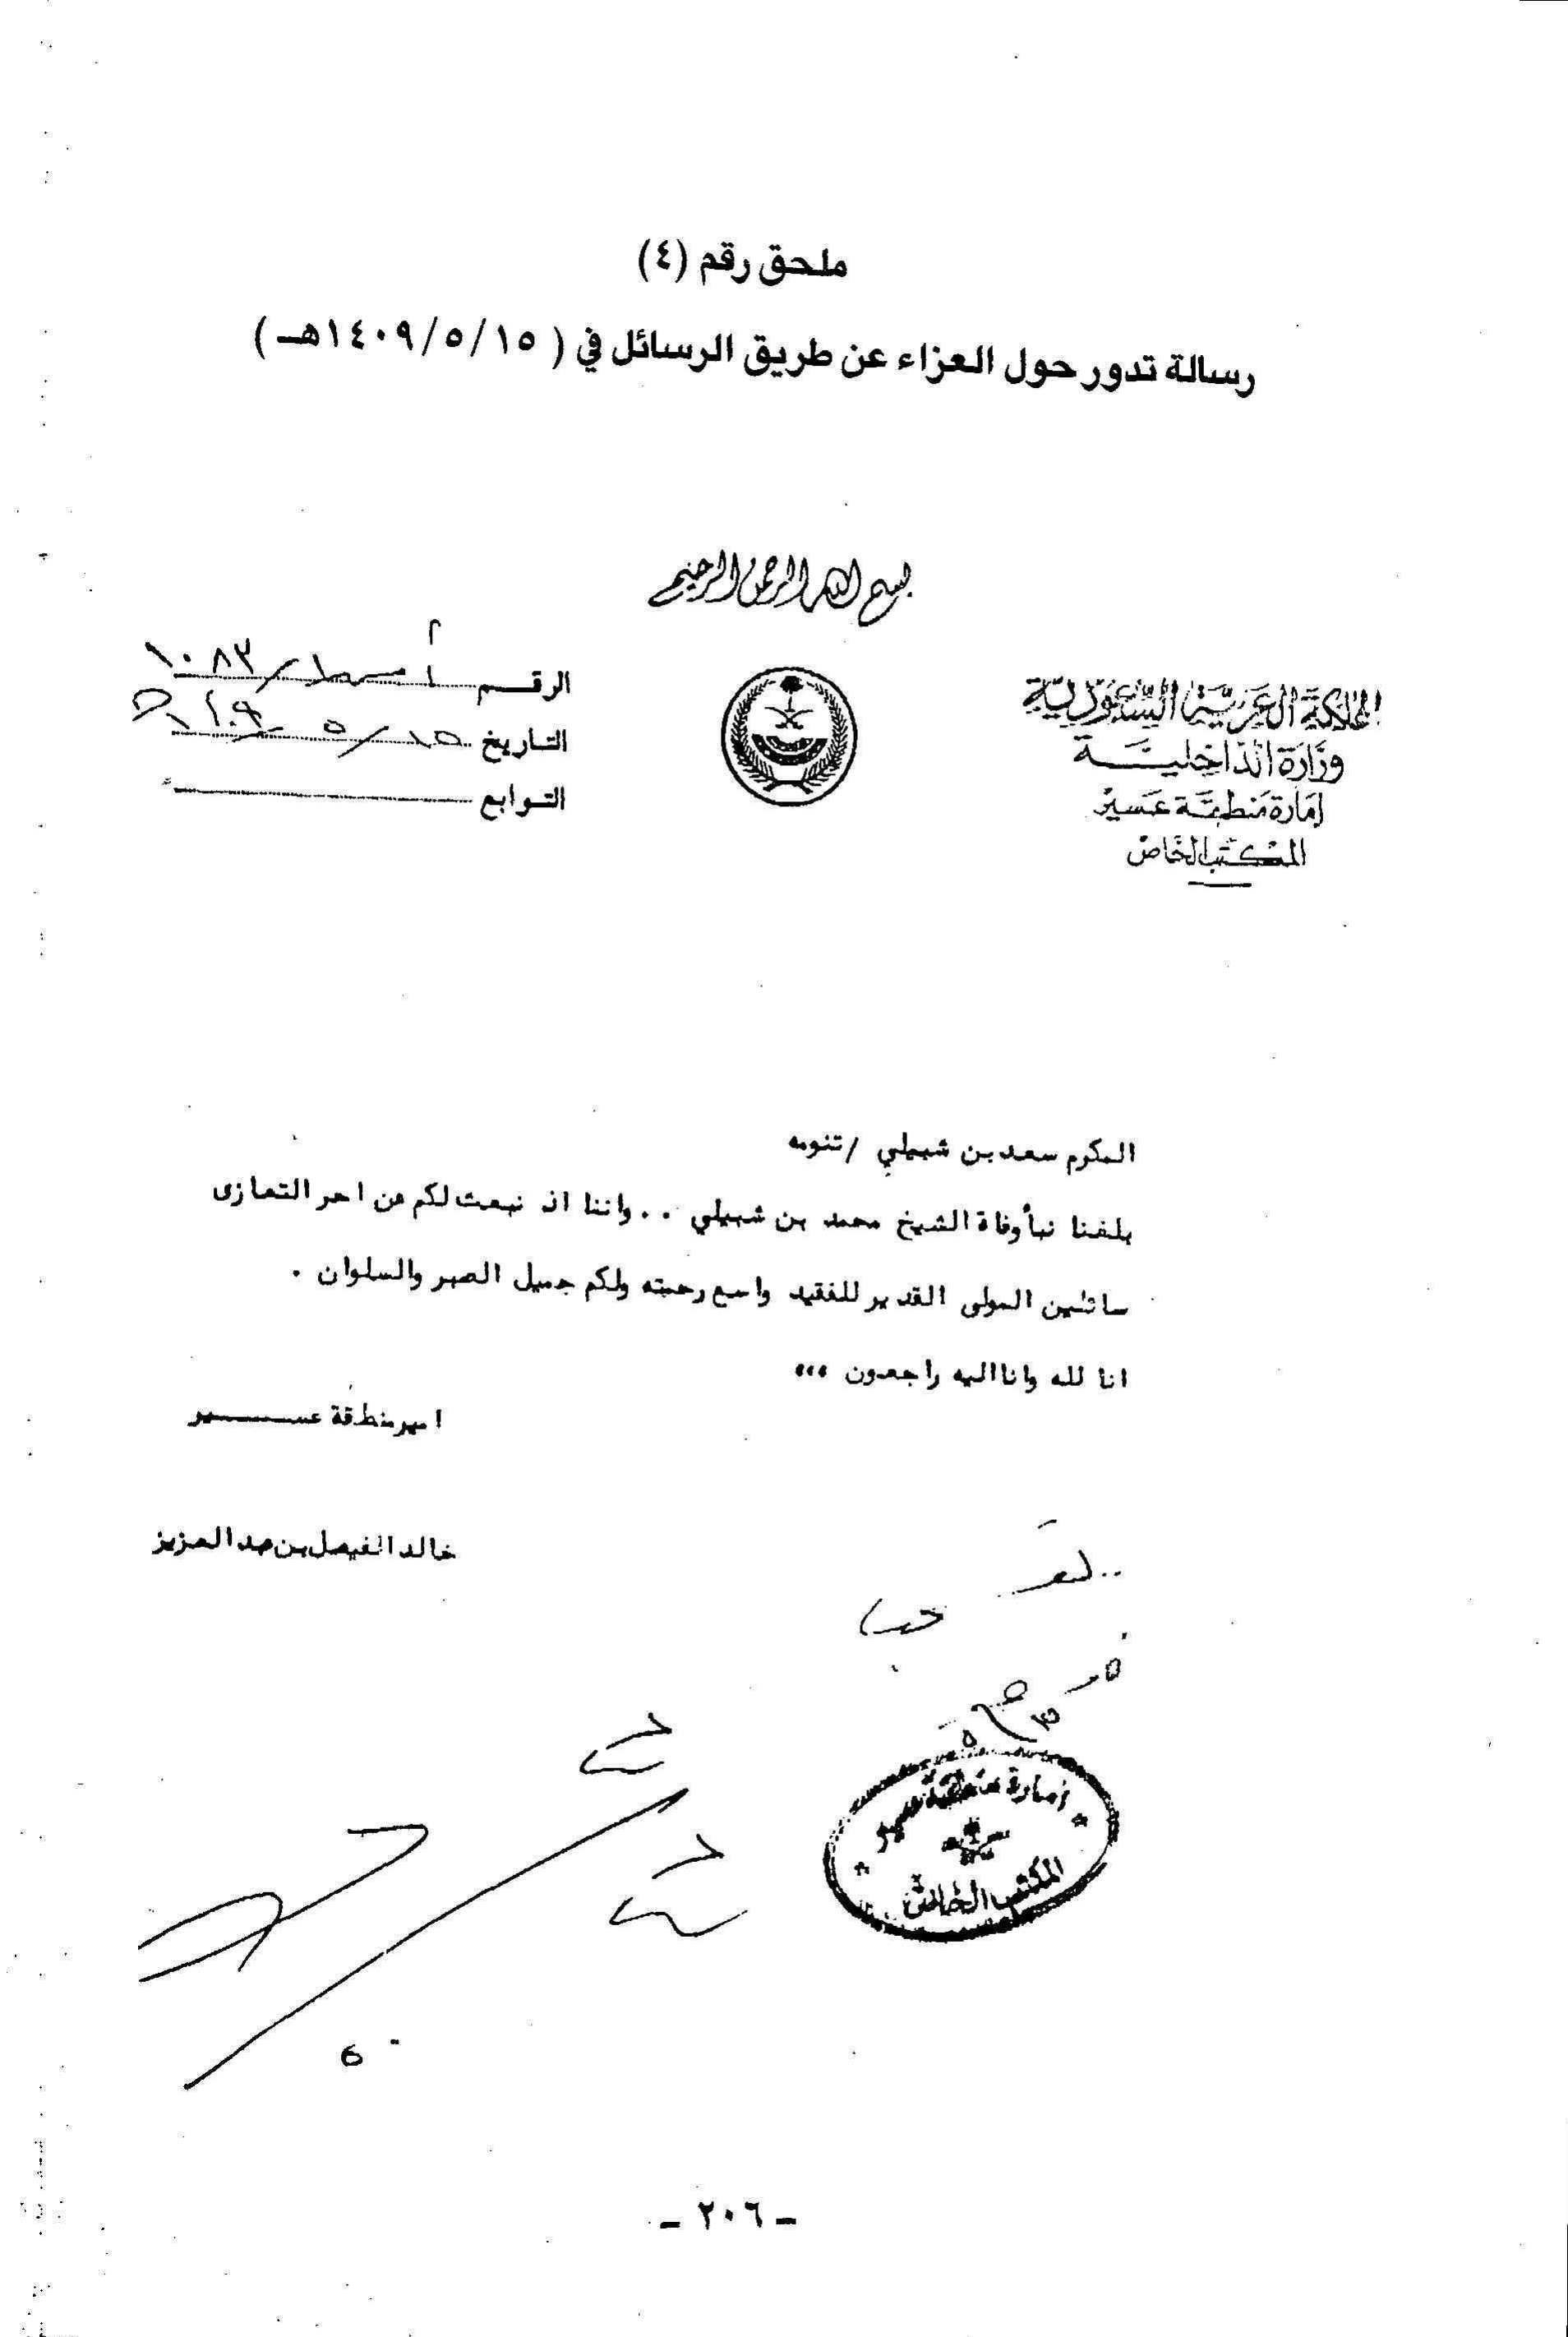 ملحق رقم (٤)
رسالة تدور حول العزاء عن طريق الرسائل في ( ١٥/٥/١٤٠٩هـ )
بسم الله الرحمن الرحيم
المملكة العربية السعودية
وزارة الداخلية
إمارة منطقة عسير
المكتب الخاص
الرقم
التاريخ ١٥/٥
التوابع
المكرم سعد بن شبيلي / تنومه
بلغنا نبأ وفاة الشيخ محمد بن شبيلي .. واننا اذ نبعث لكم من احر التعازى
سائلين المولى القدير للفقيد واسع رحمته ولكم جميل الصبر والسلوان .
انا لله وانا اليه راجعون ،،،
امير منطقة عسير
خالد الفيصل بن عبد العزيز
إمارة منطقة عسير
المكتب الخاص
- ٢٠٦ -